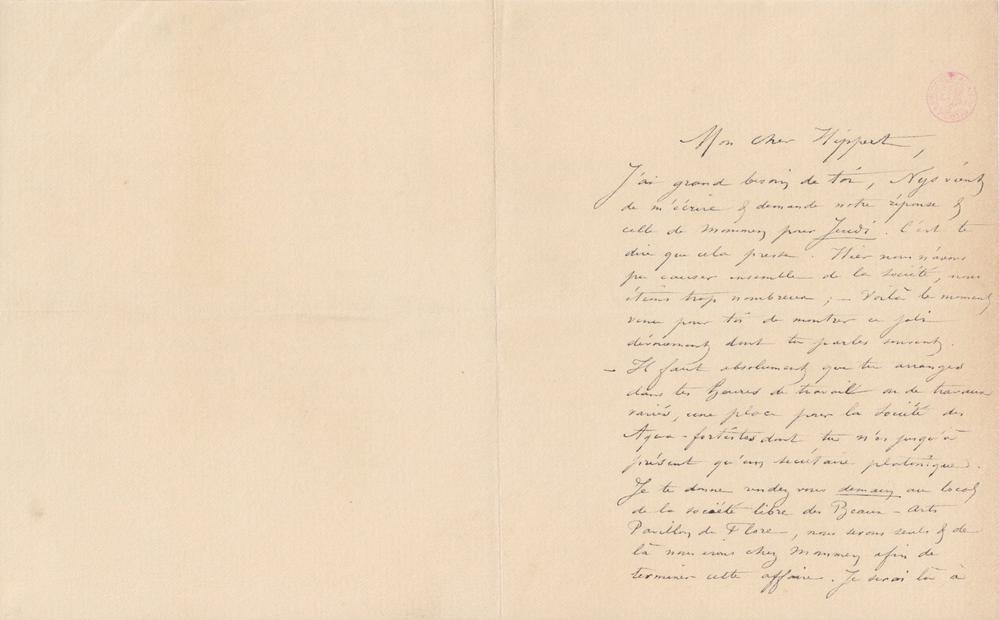 Mon cher Hippert,
J'ai grand besoin de toi, Nys vient
de m'écrire & demande notre réponse &
celle de Mommen pour Jeudi. C'est te
dire que cela presse. Hier nous n'avons
pu causer ensemble de la société, nous
étions trop nombreux ; – Voilà le moment
venu pour toi de montrer ce joli
dévouement dont tu parles souvent.
– Il faut absolument que tu arranges
dans tes heures de travail ou de travaux
variés, une place pour la Société des
Aqua-fortistes dont tu n'es jusqu'à
présent qu'un secrétaire platonique.
Je te donne rendez vous demain au local
de la société libre des Beaux-Arts
Pavillon de Flore, nous serons seuls & de
là nous irons chez Mommen afin de
terminer cette affaire. Je serai là à